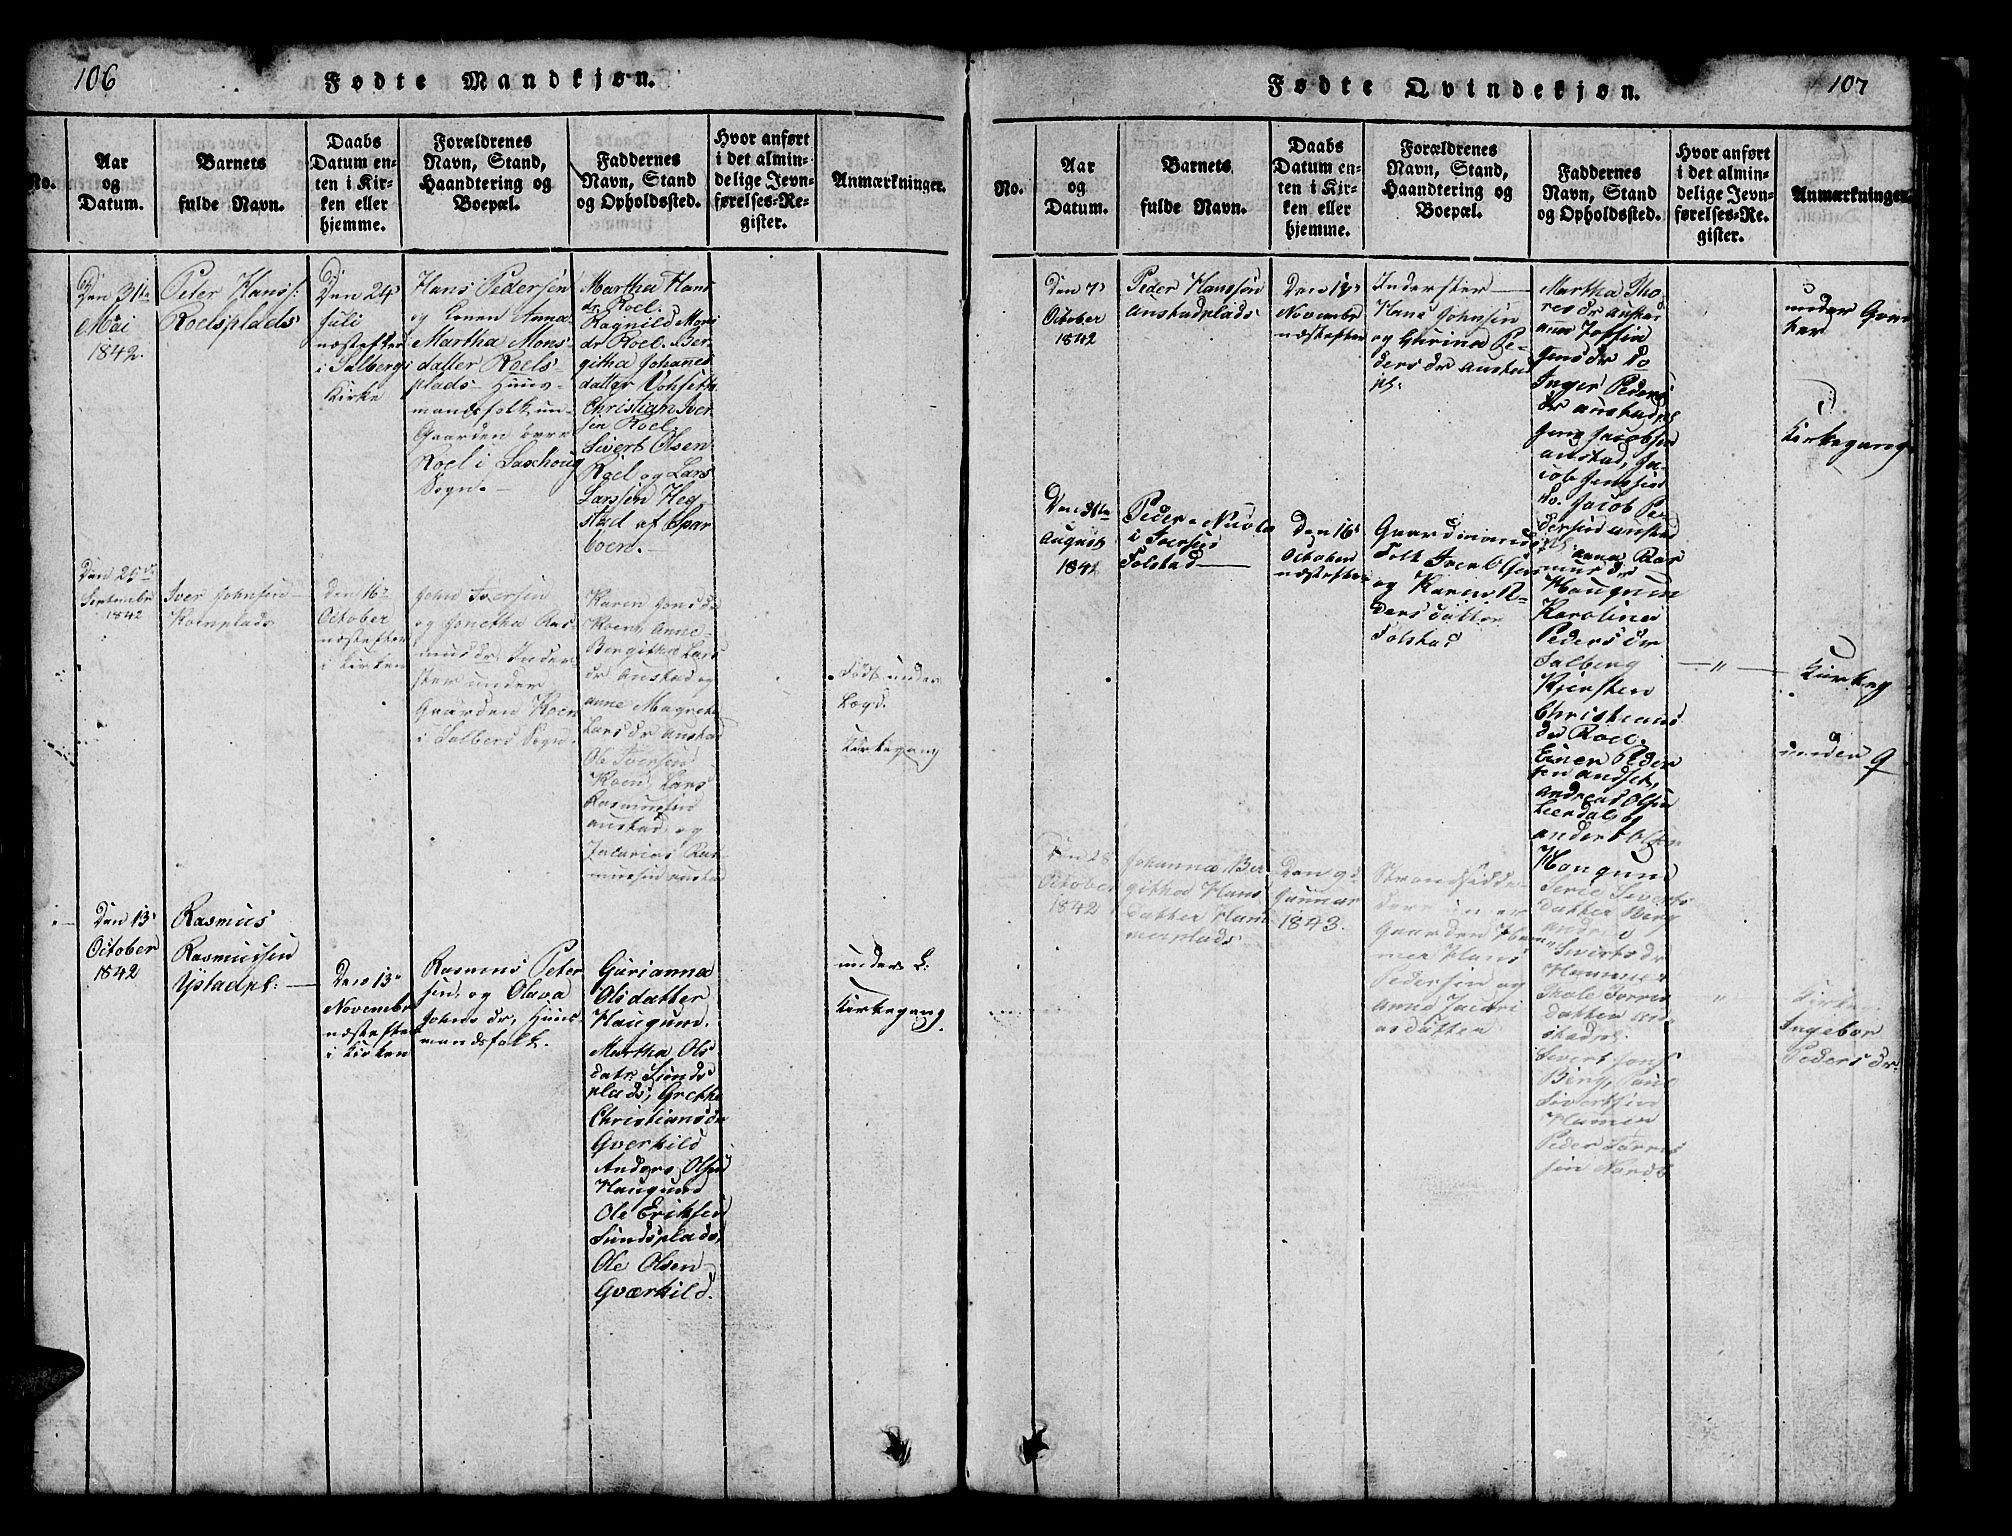 106
Fødte Mandkjøn.
No.
Aar
og
Datum.
Barnets
fulde Navn.
Daabs
Datum en-
ten i Kir-
ken eller
hjemme.
Forældrenes
Navn, Stand,
Haandtering og
Boepæl.
Faddernes
Navn, Stand
og Opholdssted.
Hvor anført
i det almin-
delige Jevn-
førelses-Re-
gister.
Anmærkninger.
Den 31te
Mai
1842.
Peter Hanss:
Roelsplads
Den 24
Juli
næstefter
i Salbergs
Kirke
Hans Pedersen
og Konen Anna
Martha Mons-
datter Roels-
plads Huus-
mandsfolk un-
Gaarden øvre
Roel i Saxhoug
Sogn.
Martha Hans
dr Roel.
Ragnild Mons
dr Roel. Ber-
githa Johannes
datter
Christian Iver-
sen Roel.
Sivert Olsen
Roel og Lars
Larssen Heg-
stad af Spar
boen.
Den 25de
Septembr
1842
Iver Johnsen
Koenplads
Den 16de
October
næstefter
i Kirken
John Iversen
og Jonetha Ras-
mus dr Inder-
ster under
Gaarden Koen
i Salbers Sogn.
Karen Jons dr
Koen, Anne
Bergitha Lars
dr Austad og
Anne Magreta
Lars dr Austad
Ole Iversen
Koen Lars
Rasmussen
Austad og
Zacarias Ras-
mussen Austad
Født under
Lægd.
Kirkegang
Den 13de
October
1842
Rasmus
Rasmussen
Ystadpl:
Den 13de
Novembr
næstefter
i Kirken
Rasmus Peter
sen og Olava
Johns dr, Huus-
mandsfolk.
Gurianna
Olsdatter
Haugum.
Martha Ols
datr Sunds
plads, Grethe
Christiansdr
Gverkild
Anders Olsen
Haugum
Ole Eriksen
Sundsplads,
Ole Olsen
Gværkild.
under L:
Kirkegang
107
Fødte Qvindekjøn.
No.
Aar
og
Datum.
Barnets
fulde Navn.
Daabs
Datum en-
ten i Kir-
ken eller
hjemme.
Forældrenes
Navn, Stand,
Haandtering og
Boepæl.
Faddernes
Navn, Stand
og Opholdssted.
Hvor anført
i det almin-
delige Jevn-
førelses-Re-
gister.
Anmærkninger.
Den 7de
October
1842
Peder Hanssen
Austadplads
Den 13de
Novembr
næstefter
Inderster
Hans Johnsen
og Gurina Pe-
ders dr Austad
pl:
Martha Tho
res dr Austad
Anne
Jens dr Do
Inger Peders
dr Austadpl
Jens Jacobsen
Austad, Ja-
cob Jenssen
do. Jacob Pe-
dersen Austad
pl:
under
Kirkegang
Den 31te
August
1842
Peder Nicola
i Iversen
Folstad
Den 16de
October
næstefter
Gaardmands
Folk Iver Olsen
og Karen
dersdatter
Folstad
Anna Ras
mus dr
Haugum
Karolina
Peders dr
Salberg
Kjersten
Christians
dr Roel.
Einer Peder
sen Andset,
Andreas Olsen
Leerdal og
Andert Olsen
Haugum
"
Kirkeg
under G
Den 28
October
1842
Johanna Ber
githa Hans
datter Ham
merplads
Den 9de
Januar
1843.
Strandsidde-
dere under
Gaarden Ham
mer Hans
Pedersen og
Anna Zacari
asdatter
Serie Siverts
datter Berg
Siverts dr
Hammer
datter
Sivert Jons
Berg, Paul
Sivertsen
Hamer
Peder Torris
sen
"
Kirke
Ingebor
Peders dr